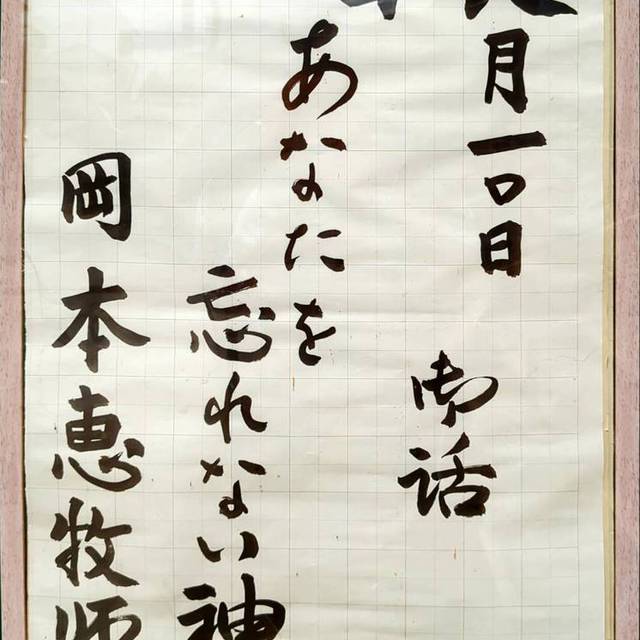 月一〇日
御話
あなたを
忘れない神
岡本恵牧師